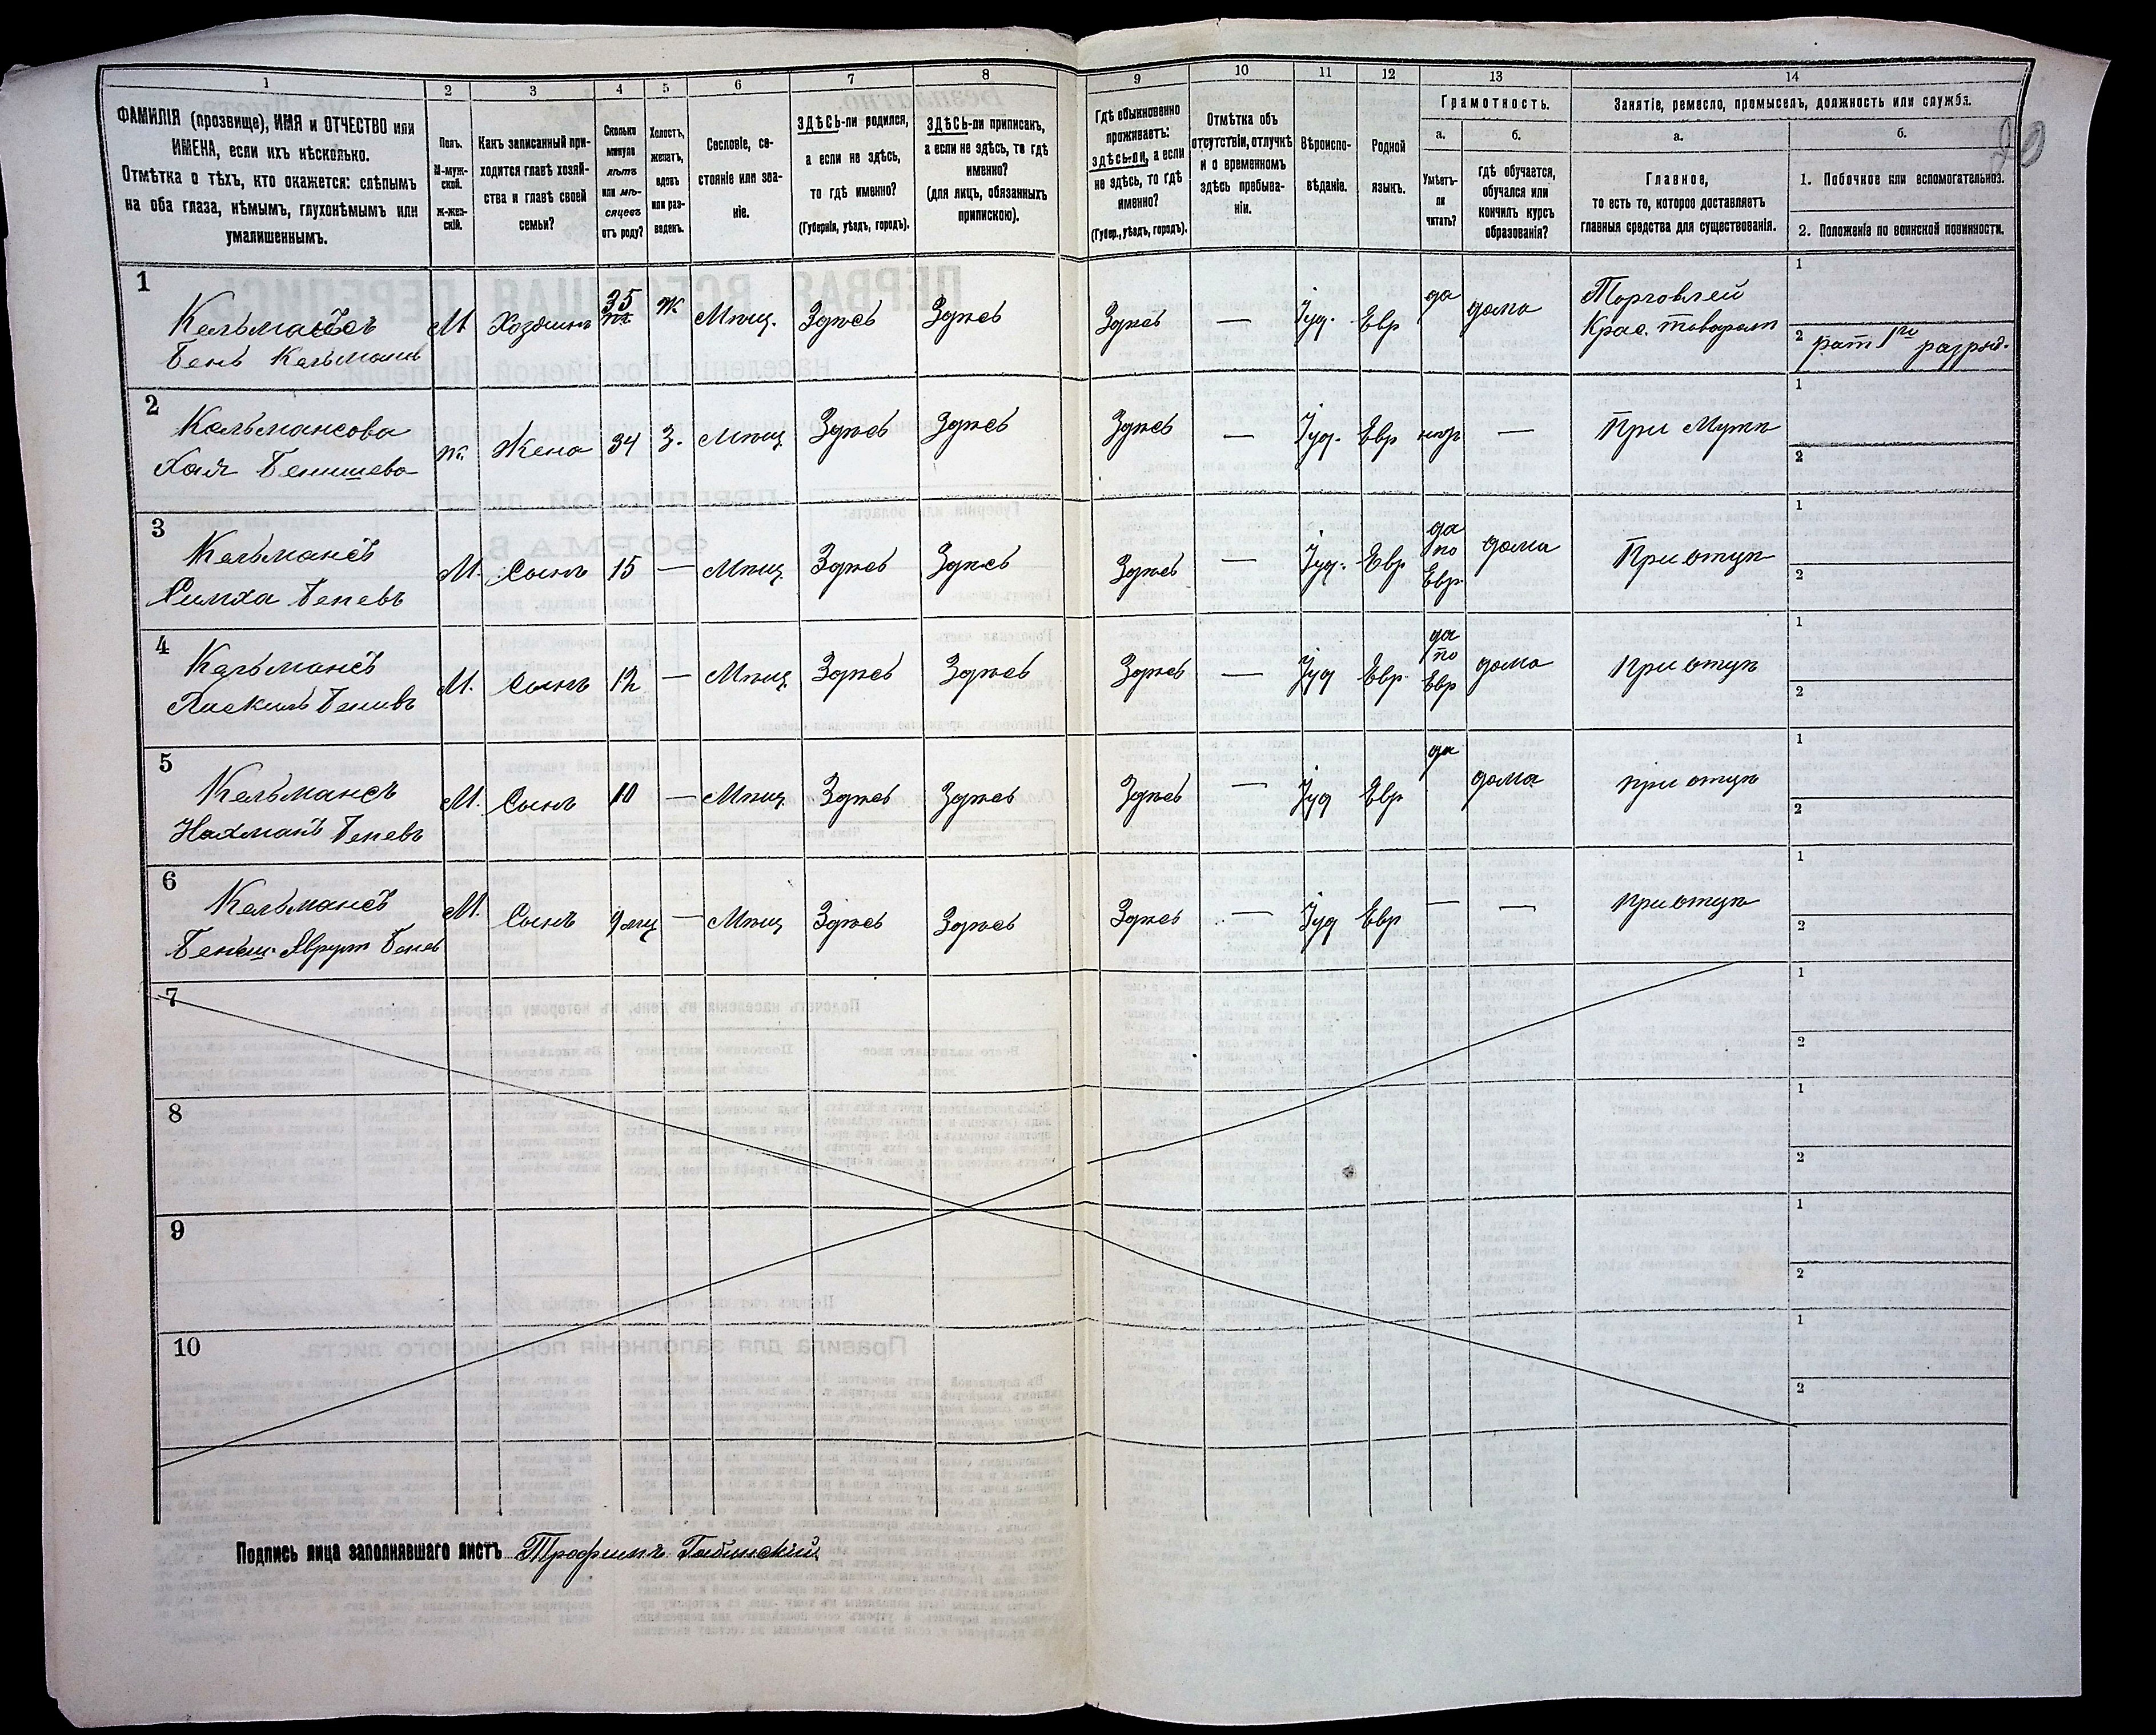 1
2
3
4
5
6
7
8
9
10
11
12
13
14
ФАМИЛІЯ (прозвище), ИМЯ и ОТЧЕСТВО или
ИМЕНА, если ихъ нѣсколько.
Отмѣтка о тѣхъ, кто окажется: слѣпымъ
на оба глаза, нѣмымъ, глухонѣмымъ или
умалишеннымъ.
Полъ.
М-муж-
ской.
Ж-жен-
скій.
Какъ записанный при-
ходится главѣ хозяй-
ства и главѣ своей
семьи?
Сколько
минуло
лѣтъ
или мѣ-
сяцевъ
отъ роду?
Холостъ,
женатъ,
вдовъ
или раз-
веденъ.
Сословіе, со-
стояніе или зва-
ніе.
ЗДѢСЬ-ли родился,
а если не здѣсь,
то гдѣ именно?
(Губернія, уѣздъ, городъ).
ЗДѢСЬ-ли приписанъ,
а если не здѣсь, то гдѣ
именно?
(для лицъ, обязанныхъ
припискою).
Гдѣ обыкновенно
проживаетъ:
здѣсь-ли, а если
не здѣсь, то гдѣ
именно?
(Губер., уѣздъ, городъ).
Отмѣтка объ
отсутствіи, отлучкѣ
и о временномъ
здѣсь пребыва-
ніи.
Вѣроиспо-
вѣданіе.
Родной
языкъ.
Грамотность.
а.
б.
Умѣетъ-
ли
читать?
Гдѣ обучается,
обучался или
кончилъ курсъ
образованія?
Занятіе, ремесло, промыселъ, должность или служба.
а.
б.
Главное,
то есть то, которое доставляетъ
главныя средства для существованія.
1. Побочное или вспомогательное.
2. Положеніе по воинской повинности.
1
Кельмансъ
Бенъ Кельмановъ
М Хозяинъ 35 Ж. Мѣщ. Здѣсь Здѣсь Здѣсь — Іуд. Евр да дома
Торговлей
Крас. товаромъ
1
2 рат 1го разряд.
2
Кельмансова
Хая Бенишева
ж. Жена 34 З. Мѣщ Здѣсь Здѣсь Здѣсь — Іуд. Евр — При Мужѣ
1
2
3
Кельмансъ
Симха Беневъ
М. Сынъ 15 — Мѣщ. Здѣсь Здѣсь Здѣсь — Іуд. Евр
да
по
Евр.
дома При отцѣ
1
2
4
Кельмансъ
Беневъ
М. Сынъ 12 — Мѣщ. Здѣсь Здѣсь Здѣсь — Іуд Евр.
да
по
Евр
дома При отцѣ
1
2
5
Кельмансъ
Нахманъ Беневъ
М. Сынъ 10 — Мѣщ. Здѣсь Здѣсь Здѣсь — Іуд Евр да дома при отцѣ
1
2
6
Кельмансъ
Беневъ
М. Сынъ 9 мц — Мѣщ Здѣсь Здѣсь Здѣсь — Іуд Евр — — при отцѣ
1
2
7
1
2
8
1
2
9
1
2
10
1
2
Подпись лица заполнявшаго листъ Трофимъ